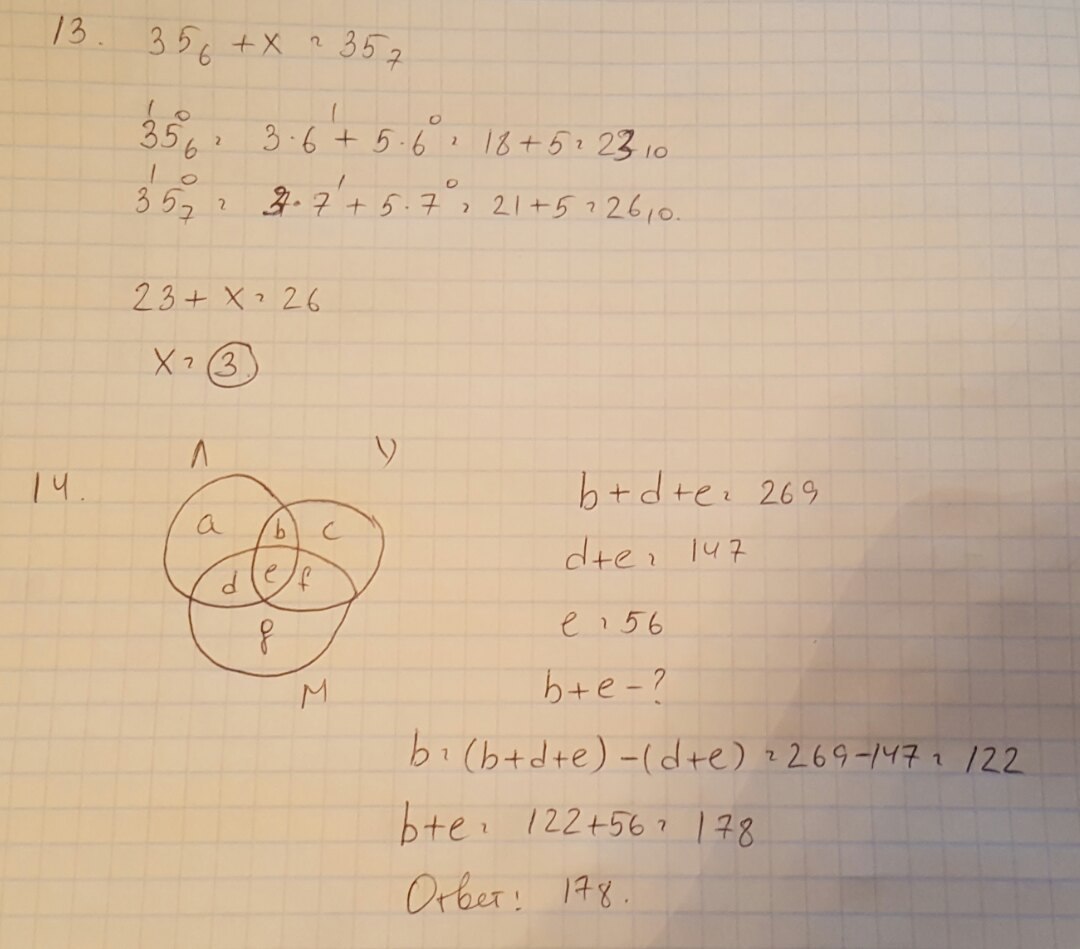 13. 35₆ + x = 35₇
¹3⁰5₆ = 3·6¹ + 5·6⁰ = 18 + 5 = 23₁₀
¹3⁰5₇ = 3·7¹ + 5·7⁰ = 21 + 5 = 26₁₀.
23 + x = 26
x = 3
14.
Л У
a b c
d e f
g
М
b + d + e = 269
d + e = 147
e = 56
b + e - ?
b = (b + d + e) - (d + e) = 269 - 147 = 122
b + e = 122 + 56 = 178
Ответ: 178.